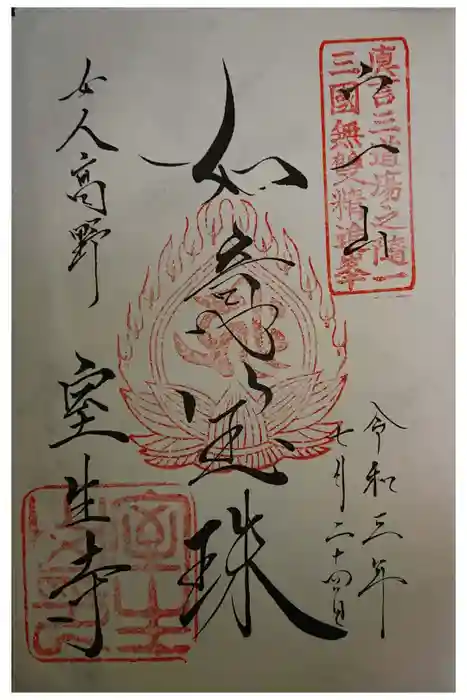 眞言三道場之隨一
三國無雙精進峯
宀一山
令和三年
七月二十四日
如意宝珠
女人高野
室生寺